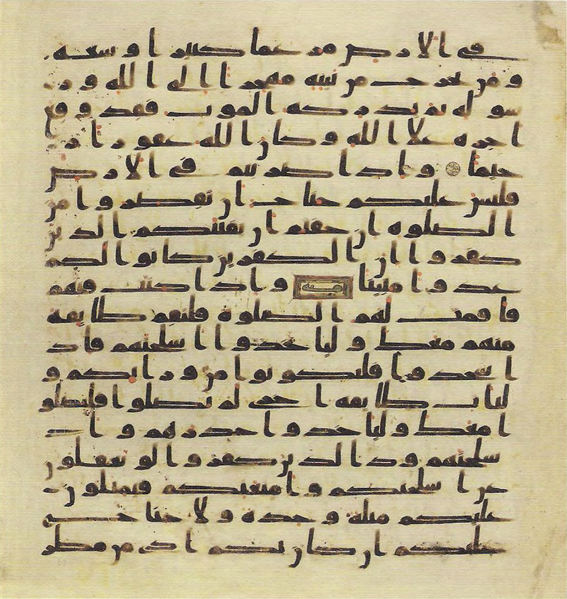 فى الارض مرغما كثيرا وسعه
ومن يخرج من بيته مهجرا الى الله ور
سوله ثم يدركه الموت فقد وقع
اجره علا الله وكان الله غفورا ر
حيما واذا ضربتم فى الارض
فليس عليكم جناح ان تقصروا من
الصلوه ان خفتم ان يفتنكم الذين
كفروا ان الكفرين كانوا لكم
عدوا مبينا واذا كنت فيهم
فاقمت لهم الصلوه فلتقم طايفه
منهم معك ولياخذوا اسلحتهم فاذ
ا سجدوا فليكونوا من ورايكم و
لتات طايفه اخرى لم يصلوا فليصلو
ا معك ولياخذوا حذرهم وا
سلحتهم ود الذين كفروا لو تغفلون
عن اسلحتكم وامتعتكم فيميلون
عليكم ميله وحده ولا جناح
عليكم ان كان بكم اذى من مطر